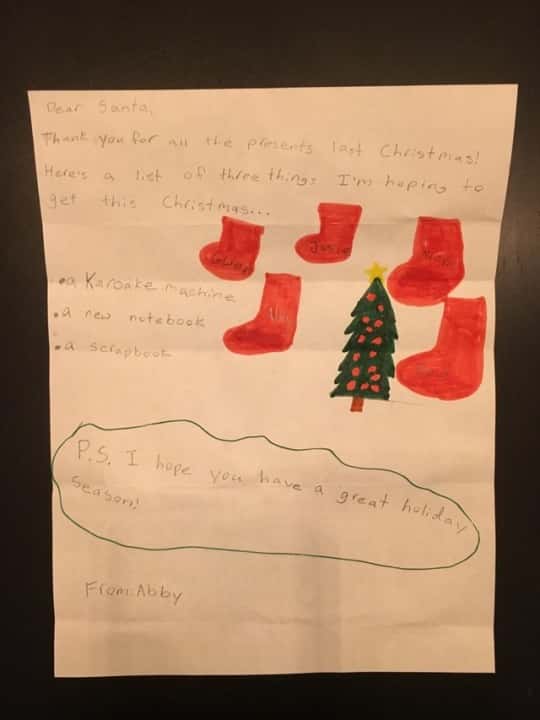 Dear Santa,
Thank you for all the presents last Christmas!
Here's a list of three things I'm hoping to
get this Christmas...
Josie
• a Karoake machine
• a new notebook
• a scrapbook
P.S. I hope you have a great holiday
season!
From: Abby